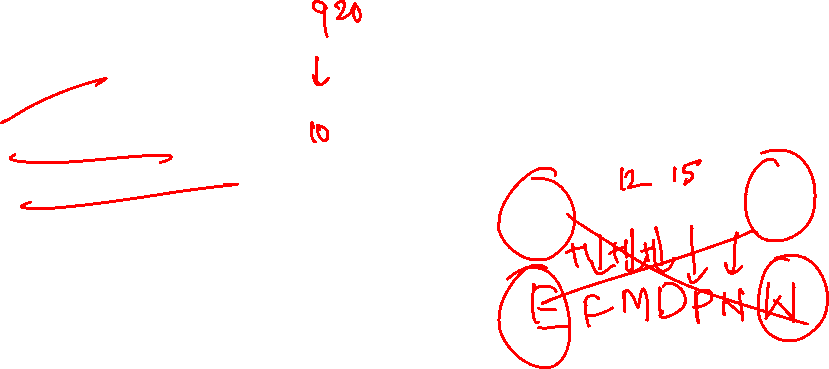 920
10
12 15
H H H
E F M D P N W